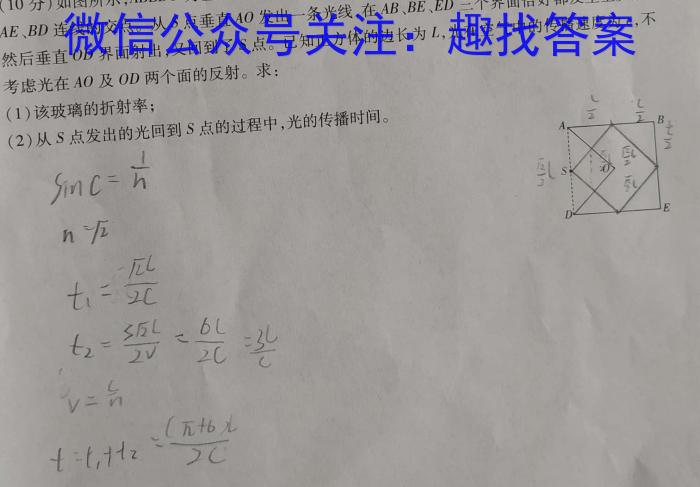 (10分)如图所示,
AE、BD连线的交点。从S点垂直AO发出一条光线,在AB、BE、ED三个界面恰好都发生
微信公众号关注:趣找答案
然后垂直OD界面射出,又回到S点。已知正方体的边长为L,的传播速度为c,不
考虑光在AO及OD两个面的反射。求:
(1)该玻璃的折射率;
(2)从S点发出的光回到S点的过程中,光的传播时间。
L/2 L/2
A B
L/2
√2/2L S O √2L/2
√2L/2
D E
sinC = 1/n
n=√2
t₁ = √2L/2C
t₂ = 3√2L/2V = 6L/2C = 3L/C
V = C/n
t=t₁+t₂ = (√2+6)L/2C